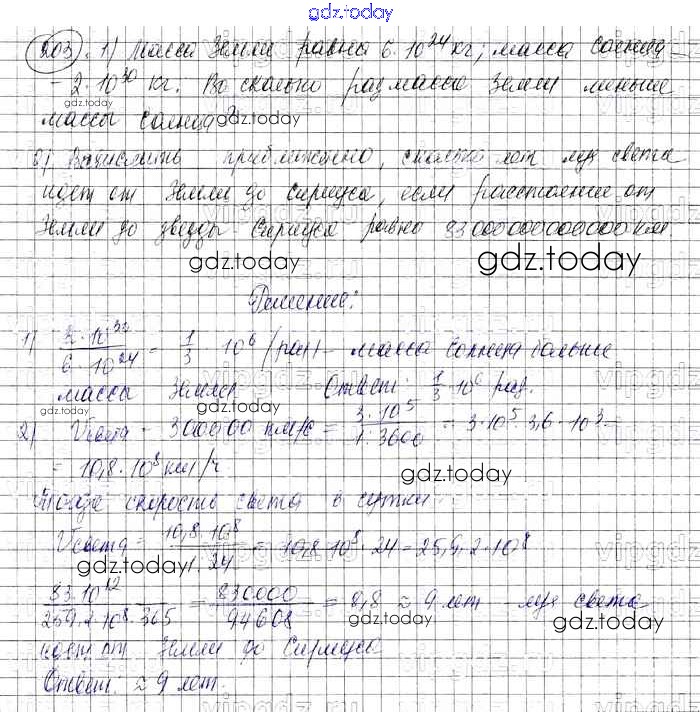 gdz.today
203. 1) Масса Земли равна 6·10²⁴ кг; масса солнца
- 2·10³⁰ кг. Во сколько раз масса Земли меньше
gdz.today
массы солнца?
gdz.today
2) Вычислить приближённо, сколько лет луч света
идет от Земли до Сириуса, если расстояние от
Земли до звезды Сириуса равно 83000000000000 км
gdz.today
gdz.today
Решение:
1) 2·10³⁰ / 6·10²⁴ = 1/3 · 10⁶ (раз) - масса солнца больше
массы Земли Ответ: 1/3·10⁶ раз.
gdz.today
gdz.today
2) Vсвета = 300000 км/с = 3·10⁵ / 1:3600 = 3·10⁵·3,6·10³ =
= 10,8·10⁸ км/ч
gdz.today
скорость света в сутки
Vсвета = 10,8·10⁸ / 1:24 = 10,8·10⁸·24 = 259,2·10⁸
gdz.today
83·10¹² / 259,2·10⁸·365 = 830000 / 94608 = 8,8 ≈ 9 лет луч света
gdz.today
gdz.today
идет от Земли до Сириуса
Ответ: ≈ 9 лет.
gdz.today